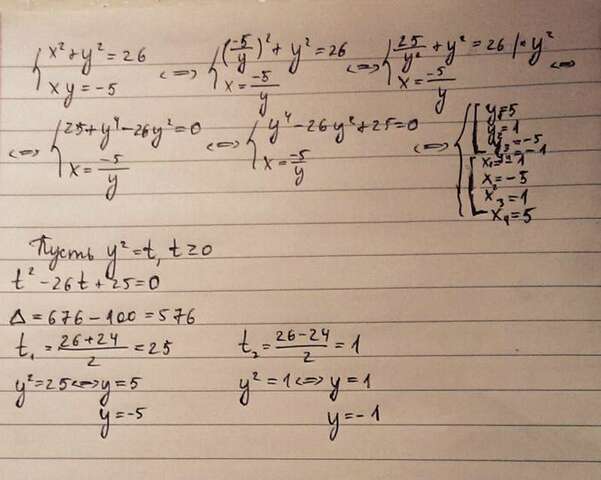 { x² + y² = 26
xy = -5 <=> { (-5/y)² + y² = 26
x = -5/y <=> { 25/y² + y² = 26 |·y²
x = -5/y <=>
<=> { 25 + y⁴ - 26y² = 0
x = -5/y <=> { y⁴ - 26y² + 25 = 0
x = -5/y <=> { [ y₁ = 5
y₂ = 1
y₃ = -5
y₄ = -1
[ x₁ = -1
x₂ = -5
x₃ = 1
x₄ = 5
Пусть y² = t, t ≥ 0
t² - 26t + 25 = 0
Δ = 676 - 100 = 576
t₁ = (26+24)/2 = 25 t₂ = (26-24)/2 = 1
y² = 25 <=> y = 5 y² = 1 <=> y = 1
y = -5 y = -1